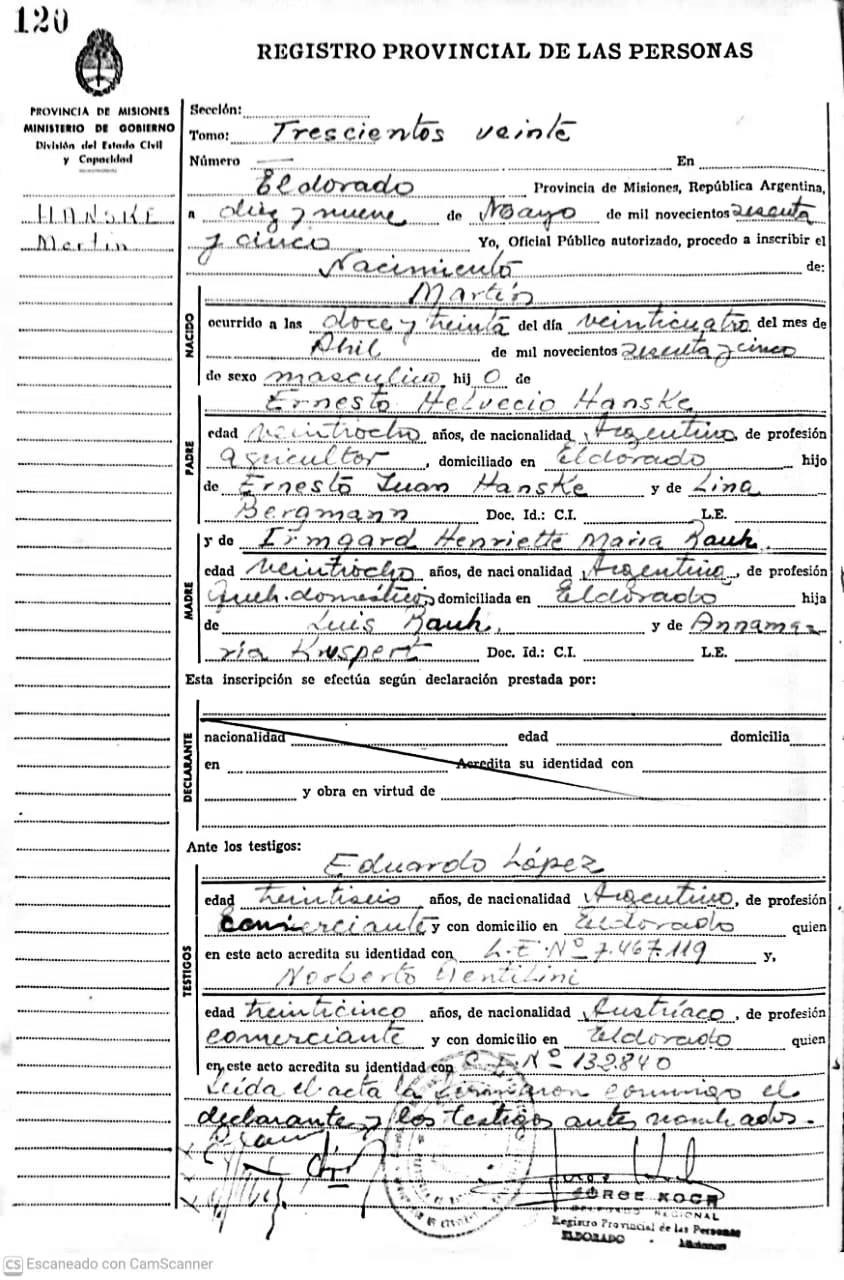 120
REGISTRO PROVINCIAL DE LAS PERSONAS
PROVINCIA DE MISIONES
MINISTERIO DE GOBIERNO
División del Estado Civil
y Capacidad
HANSKE
Martin
Sección:
Tomo: Trescientos veinte
Número — En
Eldorado Provincia de Misiones, República Argentina,
a diez y nueve de Mayo de mil novecientos sesenta
y cinco Yo, Oficial Público autorizado, procedo a inscribir el
Nacimiento de:
NACIDO
Martín
ocurrido a las doce y treinta del día veinticuatro del mes de
Abril de mil novecientos sesenta y cinco
de sexo masculino, hij o de
PADRE
Ernesto Helvecio Hanske
edad veintiocho años, de nacionalidad Argentino, de profesión
agricultor, domiciliado en Eldorado hijo
de Ernesto Juan Hanske y de Lina
Bergmann Doc. Id.: C.I. L.E.
MADRE
y de Irmgard Henriette Maria Rauh.
edad veintiocho años, de nacionalidad Argentina, de profesión
Queh. domésticos domiciliada en Eldorado hija
de Luis Rauh, y de Annama
ria Doc. Id.: C.I. L.E.
Esta inscripción se efectúa según declaración prestada por:
DECLARANTE
nacionalidad edad domicilia
en Acredita su identidad con
y obra en virtud de
Ante los testigos:
TESTIGOS
Eduardo López
edad treintiseis años, de nacionalidad Argentino, de profesión
comerciante y con domicilio en Eldorado quien
en este acto acredita su identidad con L.E. Nº 7.467.119 y,
Norberto Gentilini
edad treinticinco años, de nacionalidad Austríaco, de profesión
comerciante y con domicilio en Eldorado quien
en este acto acredita su identidad con C.I. Nº 132.840
Leída el acta la firmaron conmigo el
declarante y los testigos antes nombrados.-
JORGE KOCH
DELEGADO REGIONAL
Registro Provincial de las Personas
ELDORADO - Misiones
CS Escaneado con CamScanner